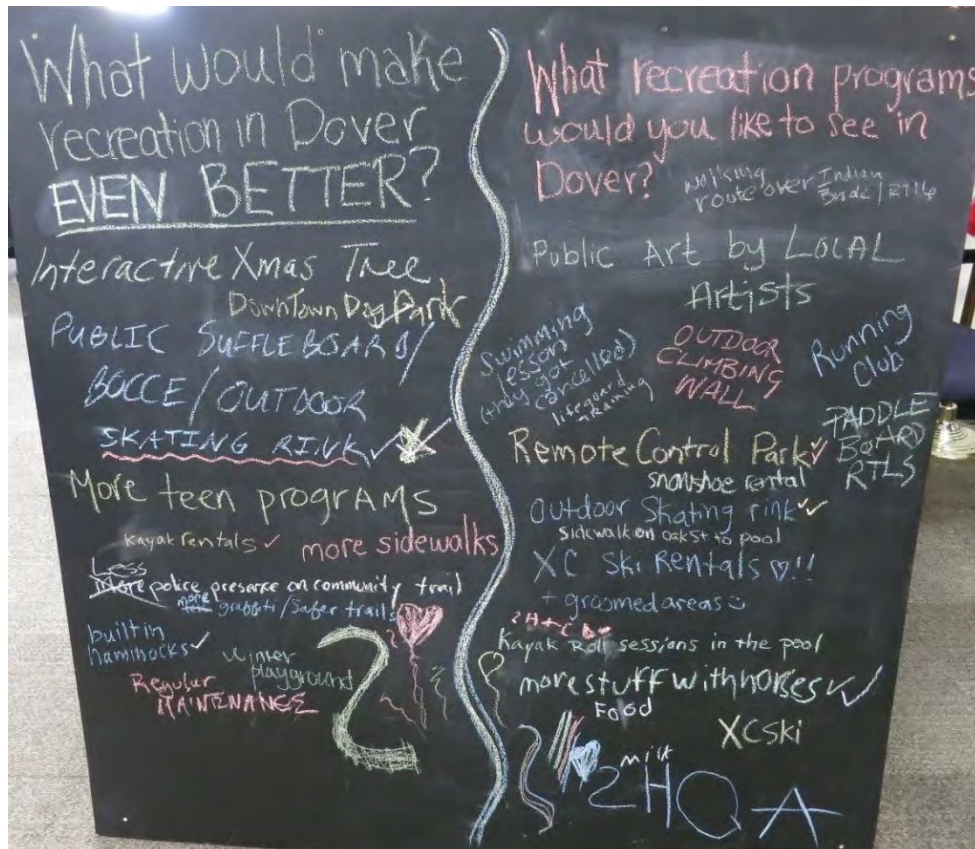 What would make
recreation in Dover
EVEN BETTER?
Interactive Xmas Tree
DownTown Dog Park
PUBLIC SUFFLEBOARD/
BOCCE/OUTDOOR
SKATING RINK
More teen programs
kayak rentals
more sidewalks
Less
More police presence on community trail
more
graffiti/Safer trails
built in
hammocks
winter
playground
Regular
MAINTENANCE
2
What recreation programs
would you like to see in
Dover?
walking
route over Indian
/RT16
Public Art by LOCAL
Artists
Swimming
lessons
(they got
cancelled)
lifeguard
training
OUTDOOR
CLIMBING
WALL
Running
Club
PADDLE
BOARD
RTLS
Remote Control Park
snowshoe rental
Outdoor Skating rink
sidewalk on oak St to pool
XC Ski Rentals ♡!!
+ groomed areas
Kayak Roll sessions in the pool
more stuff with horses
Food
XCSki
milk
2HQA